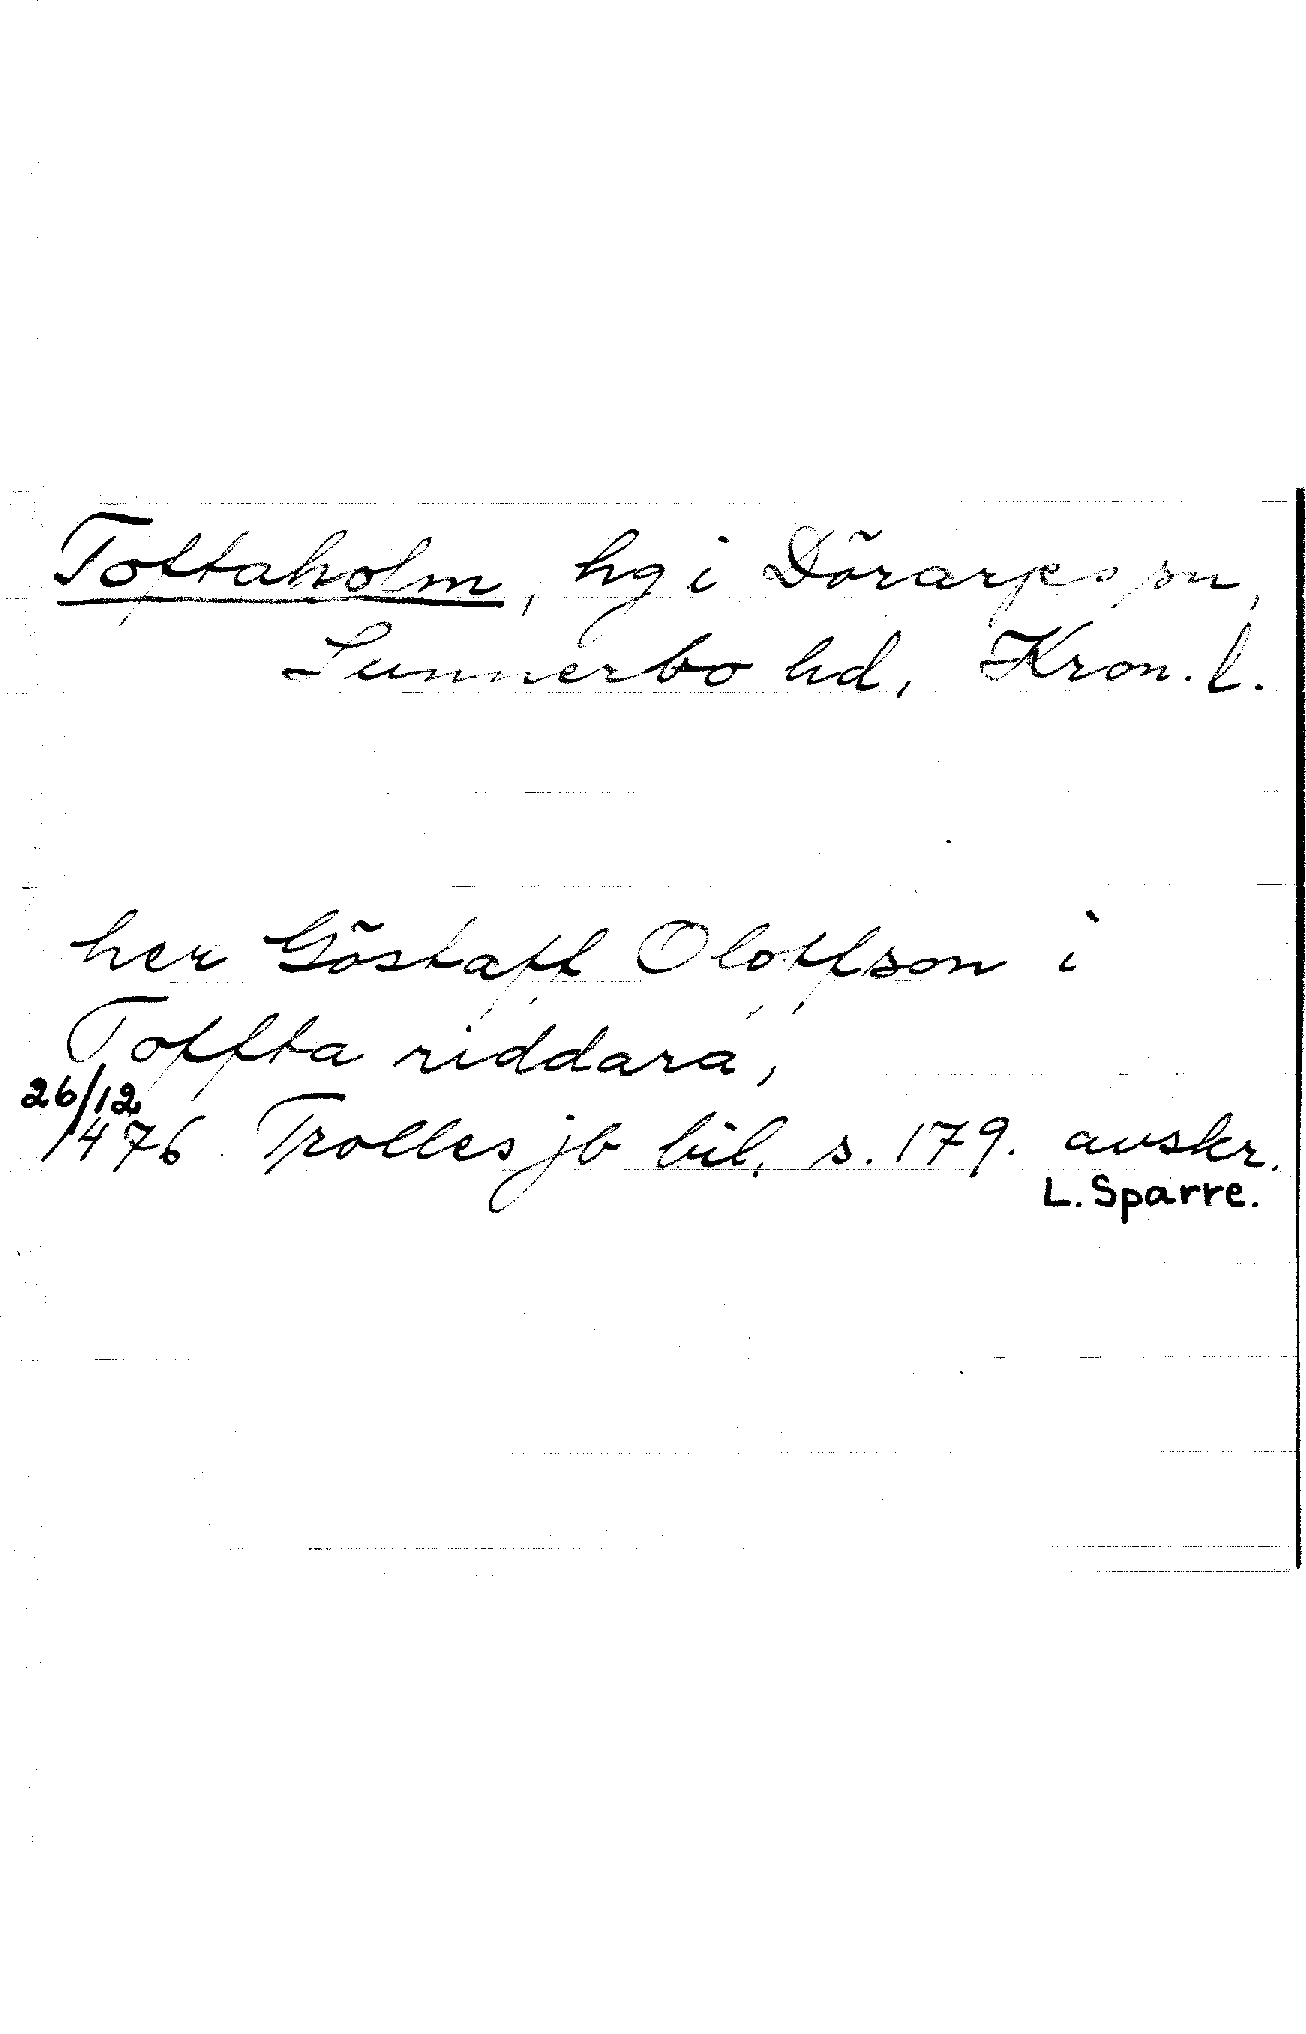 Toftaholm, hg i Dörarps sn,
Sunnerbo hd, Kron. l.
her Göstaff Oloffson i
Toffta riddara,
26/12
1476 Trolles jb bil. s. 179. avskr.
L. Sparre.